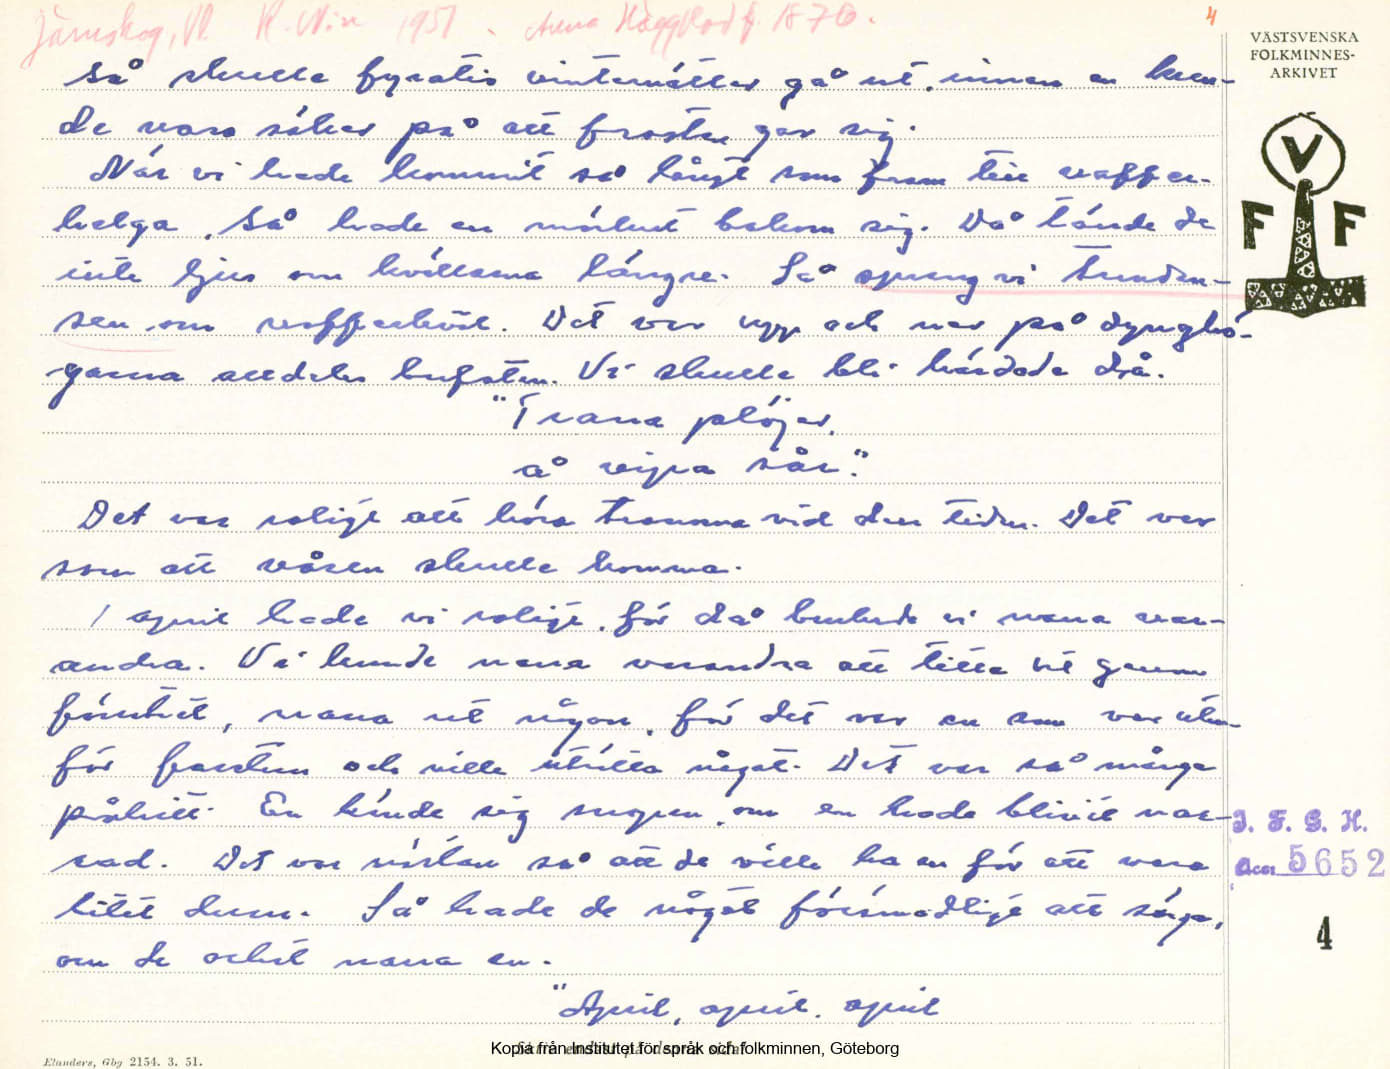 Järnskog, Vl. R. Nin 1951. Anna Häggblad f. 1870.
4
VÄSTSVENSKA
FOLKMINNES-
ARKIVET
V
F F
så skulle fyratio vinternätter gå ut, innan en kun-
de vara säker på att frosten gav sig.
När vi hade kommit så långt som fram till vaffer-
helga, så hade en mörkret bakom sig. Då tände de
inte ljus om kvällarna längre. Så sprang vi trunden-
sen om vafferkväl. Det var upp och ner på dynghö-
garna alldeles barfoten. Vi skulle bli härdada då.
"Trana plöjer,
å vipa sår".
Det var roligt att höra tranorna vid den tiden. Det var
som att våren skulle komma.
1 april hade vi roligt, för då brukade vi narra var-
andra. Vi kunde narra varandra att titta ut genom
fönstret, narra ut någon, för det var en som var utan-
för farstun och ville uträtta något. Det var så många
påhitt. En kände sig snopen, om en hade blivit nar-
rad. Det var nästan så att de ville ha en för att vara
litet dum. Så hade de något försmädligt att säga,
om de orkat narra en.
"April, april, april
J. F. G. H.
Acc. 5652
4
Kopia från Institutet för språk och folkminnen, Göteborg
Elanders, Gbg 2154. 3. 51.